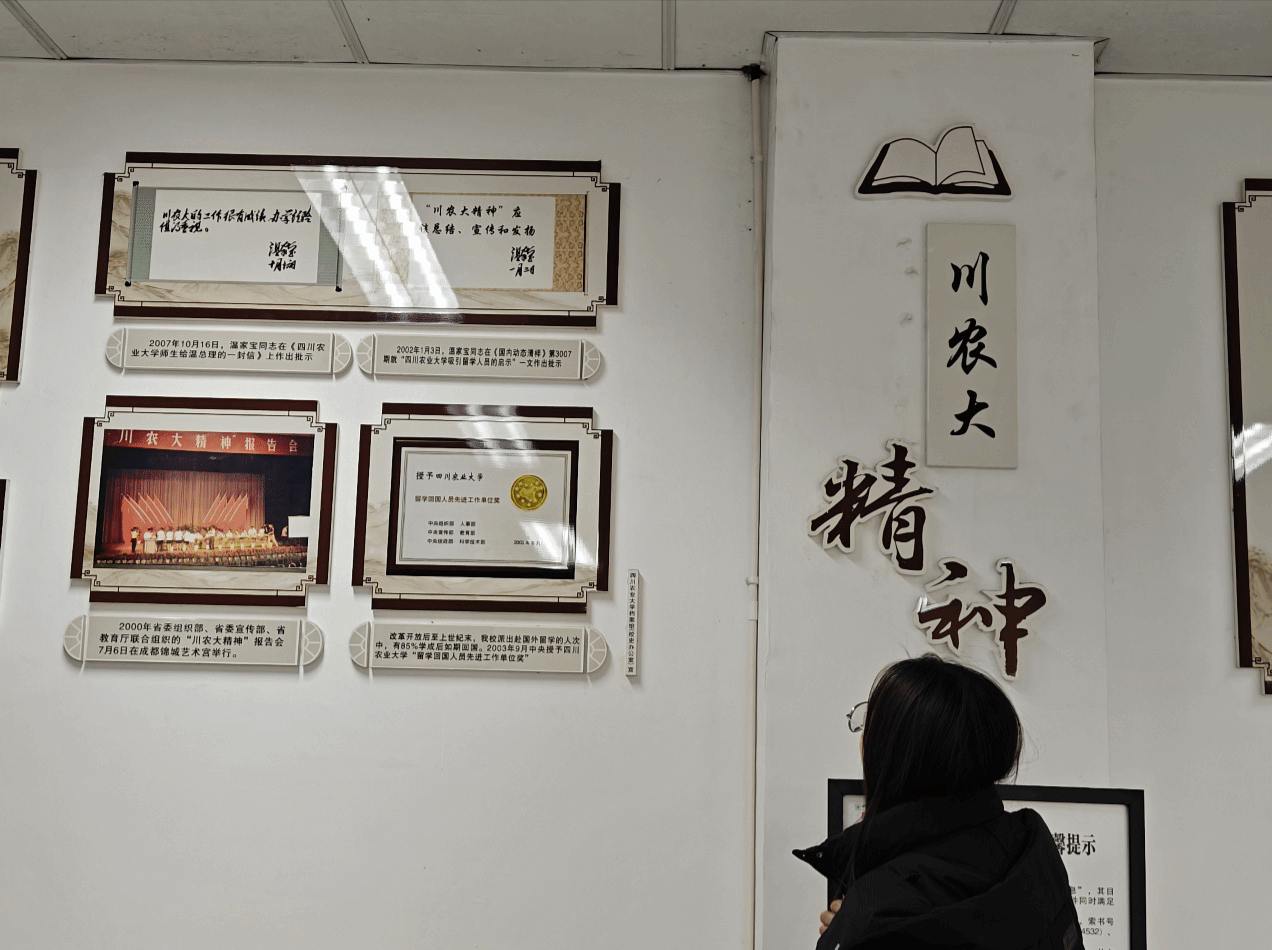 川农大的工作很有成绩,办学经验
值得重视。
温家宝
“川农大精神”应
总结、宣传和发扬
温家宝
一月三日
2007年10月16日，温家宝同志在《四川农
业大学师生给温总理的一封信》上作出批示
2002年1月3日，温家宝同志在《国内动态清样》第3007
期载“四川农业大学吸引留学人员的启示”一文作出批示
川农大精神"报告会
2000年省委组织部、省委宣传部、省
教育厅联合组织的“川农大精神”报告会
7月6日在成都锦城艺术宫举行。
授予四川农业大学
留学回国人员先进工作单位奖
中央组织部 人事部
中央宣传部 教育部
中央统战部 科学技术部
改革开放后至上世纪末，我校派出赴国外留学的人次
中，有85%学成后如期回国。2003年9月中央授予四川
农业大学“留学回国人员先进工作单位奖”
四川农业大学档案馆(校史办公室)宣
川农大
精神
馨提示
”，其目
件同时满足
，索书号
4532）、